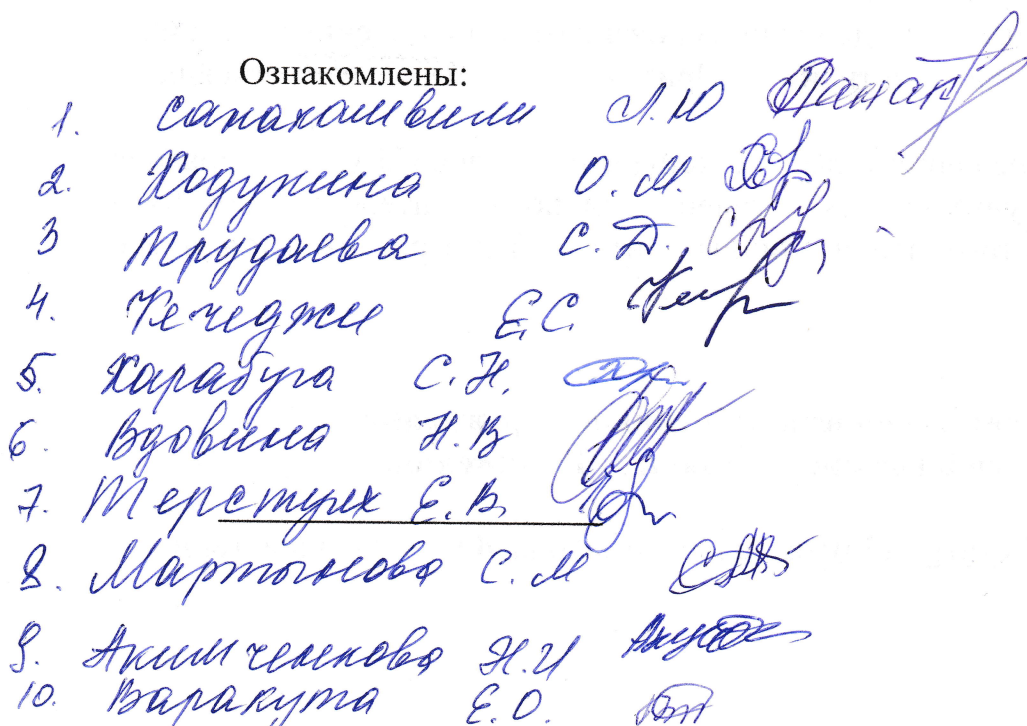 Ознакомлены:
1. Санакоишвили Л.Ю
2. Ходунина О.М.
3 Трудаева С.Д.
4. Кечеджи Е.С.
5. Карабуга С.Н.
6. Вдовина Н.В
7. Терстуях Е.В.
8. Мартынова С.М
9. Акимченкова Н.И
10. Варакута Е.О.